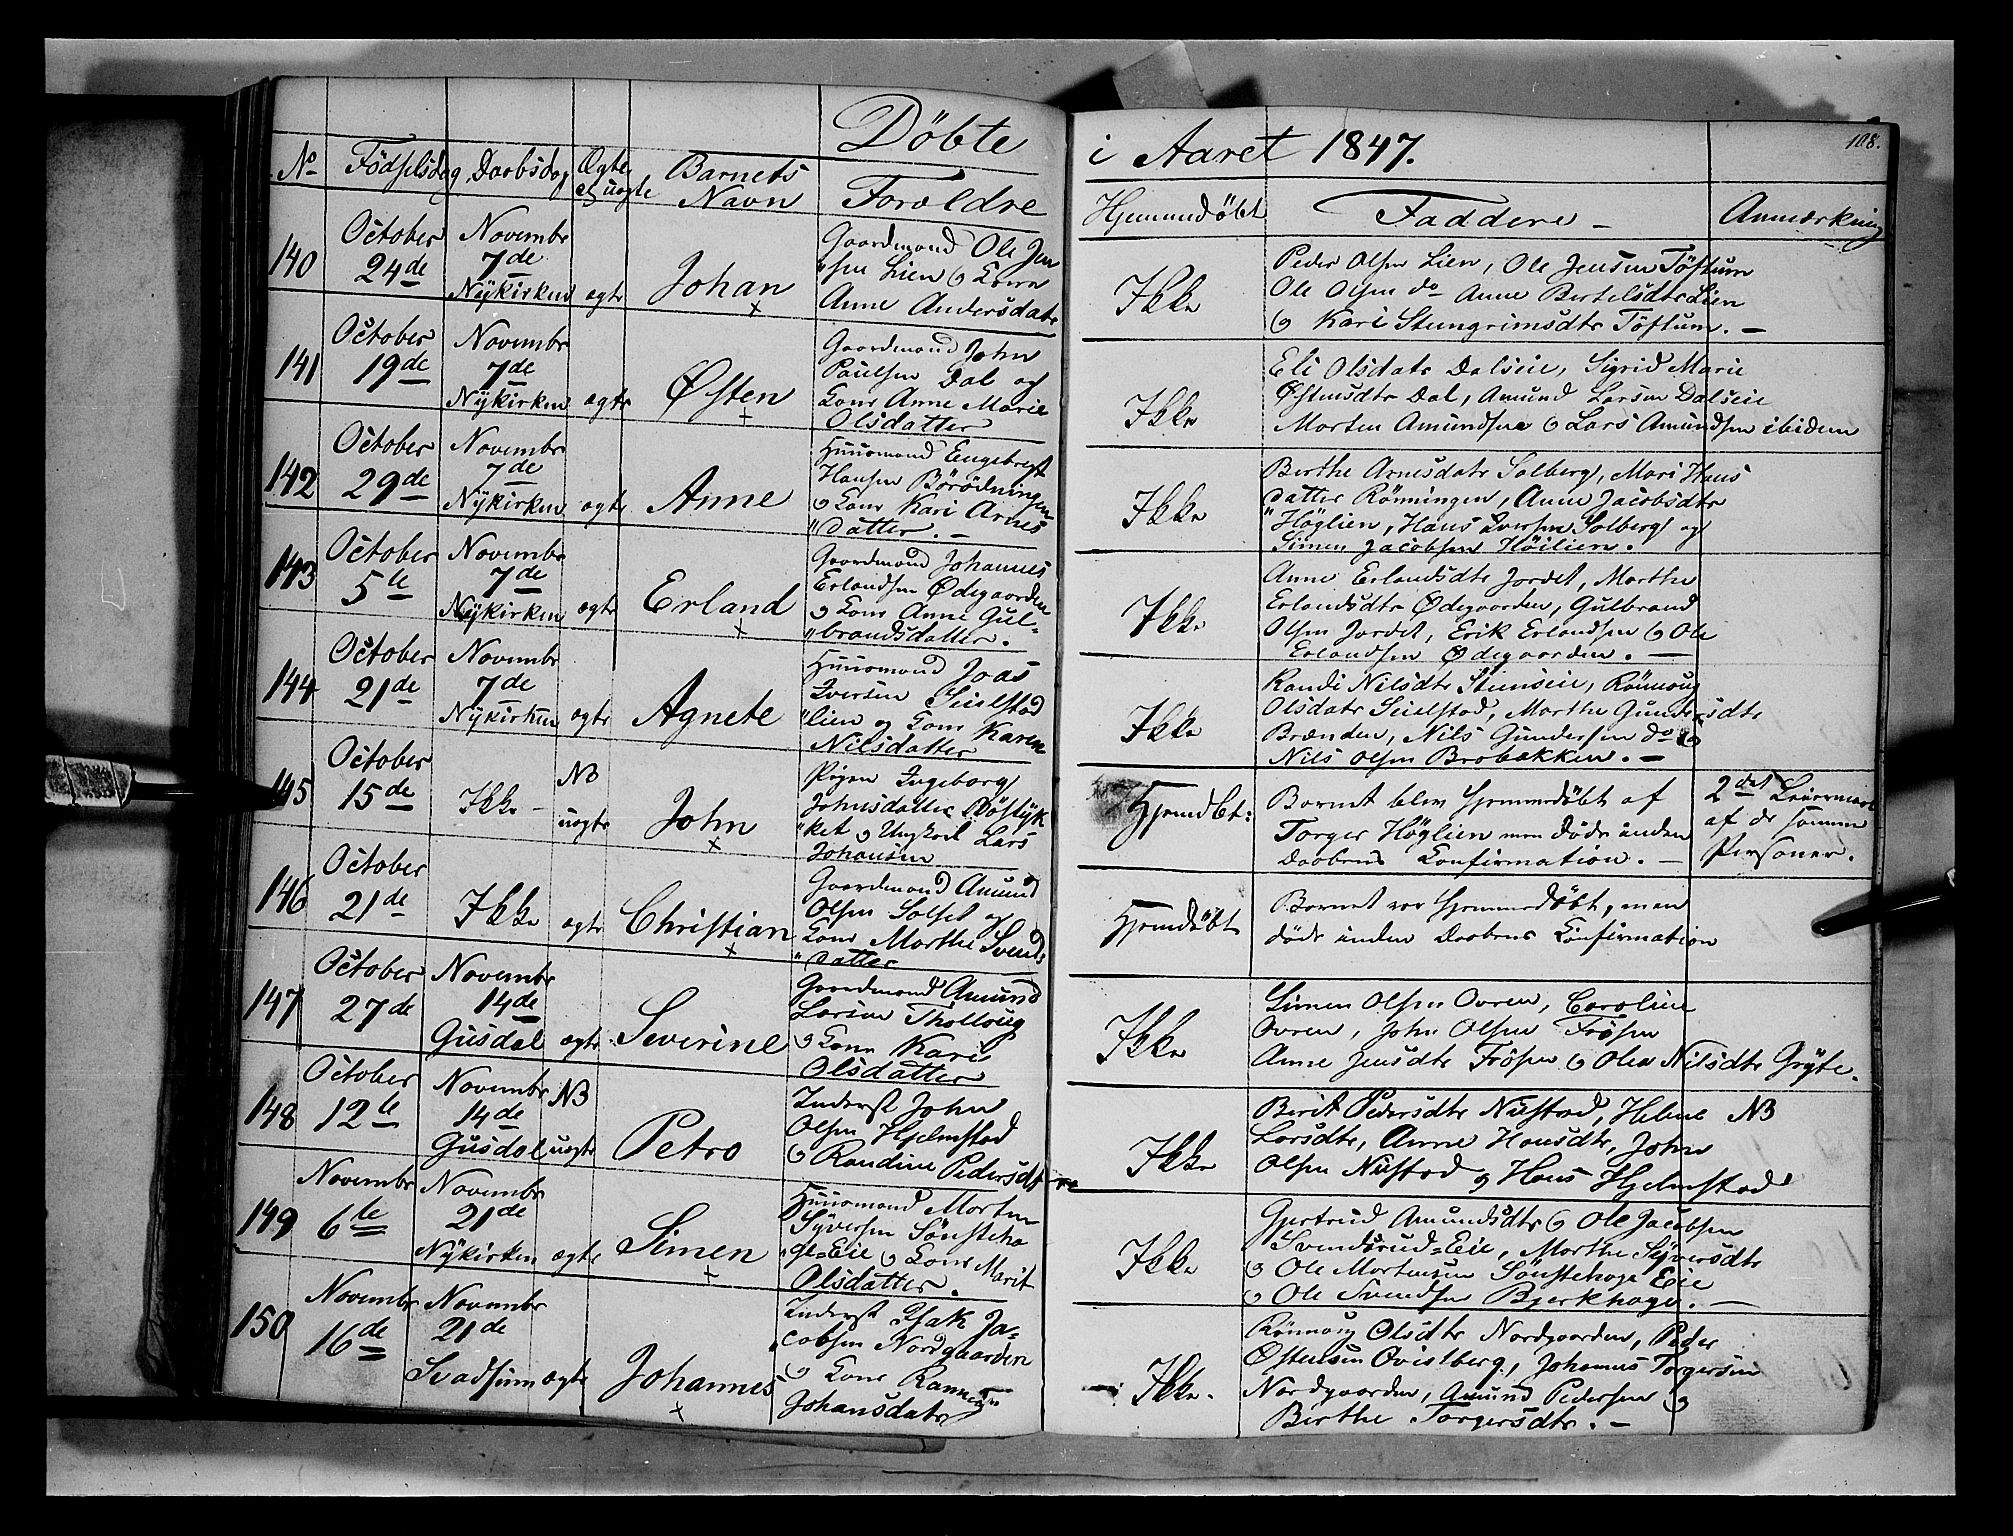 Döbte
i Aaret 1847.
108.
No Födselsdag Daabsdag Ægte el uægte Barnets Navn Forældre
Hjemmedöbt Faddere Anmærkning
140 October 24de Novembr 7de Nykirken ægte Johan
Gaardmand Ole Jen
"sen Lien og Kone
Anne Andersdatr
Ikke
Peder Olsen Lien, Ole Jensen Töftum
Ole Olsen do Anne Bertelsdtr Lien
og Kari Stengrimsdtr Töftum. –
141 October 19de Novembr 7de Nykirken ægte Østen
Gaardmand John
Paulsen Dal og
Kone Anne Marie
Olsdatter
Ikke
Eli Olsdatr Dalseie, Sigrid Marie
Østensdtr Dal, Amund Larsen Dalseie
Morten Amundsen og Lars Amundsen ibidem
142 October 29de Novembr 7de Nykirken ægte Anne
Huusmand Engebregt
Hansen Börödningen
og Kone Kari Arnes
"datter. –
Ikke
Berthe Arnesdatr Solberg, Mari Hans
datter Rönningen, Anne Jacobsdtr
"Höglien, Hans Iversen Solberg og
Simen Jacobsen Höilien.
143 October 5te Novembr 7de Nykirken ægte Erland
Gaardmand Johannes
Erlandsen Ødegaarden
og Kone Anne Gul-
"brandsdatter.
Ikke
Anne Erlandsdtr Jordet, Marthe
Erlandsdtr Ødegaarden, Gulbrand
Olsen Jordet, Erik Erlandsen og Ole
Erlandsen Ødegaarden. –
144 October 21de Novembr 7de Nykirken ægte Agnete
Huusmand Joas
Iversen Seielstad
"lien og Kone Karen
Nilsdatter
Ikke
Randi Nilsdtr Steenseie, Rönnoug
Olsdatr Seielstad, Marthe Gundersdtr
Brænden, Nils Gundersen do og
Nils Olsen Brobakken. –
145 October 15de Ikke – NB uægte John
Pigen Ingeborg
Johnsdatter
"ket og Ungkarl Lars
Johansen
Hjemdbt:
Barnet blev hjemmedöbt af
Torger Höglien men döde inden
Daabens Confirmation. –
2det Leiermaal
af de samme
Personer.
146 October 21de Ikke ægte Christian
Gaardmand Amund
Olsen Solset og
Kone Marthe Svends
"datter
Hjemdöbt
Barnet var hjemmedöbt, men
döde inden Daabens Confirmation
147 October 27de Novembr 14de Gusdal ægte Severine
Gaardmand Amund
Larsen Tholloug
og Kone Kari
Olsdatter
Ikke
Simen Olsen Ovren, Caroline
Ovren, John Olsen Frösen
Anne Jensdtr Frösen og Olea Nilsdtr Gryte.
148 October 12te Novembr 14de Gusdal NB uægte Petro
Inderst John
Olsen Hjelmstad
og Randine Pedersdtr
Ikke
Berit Pedersdtr Nustad, Helene
Larsdtr, Anne Hansdtr, John
Olsen Nustad og Hans Hjelmstad
NB
149 Novembr 6te Novembr 21de Nykirken ægte Simen
Huusmand Morten
Syversen Sönsteha
ge-Eie og Kone Marit
Olsdatter.
Ikke
Gjertrud Amundsdtr og Ole Jacobsen
Svendsrud-Eie, Marthe Syversdtr
og Ole Mortensen Sönstehage Eie
og Ole Svendsen Bjerkhage. –
150 Novembr 16de Novembr 21de Svadsum ægte Johannes
Inderst Isak Ja-
cobsen Nordgaarden
og Kone Rannoug
Johansdatr
Ikke.
Rönnoug Olsdtr Nordgaarden, Peder
Østensen Qvistberg, Johannes Torgersen
Nordgaarden, Amund Pedersen og
Berthe Torgersdtr. –